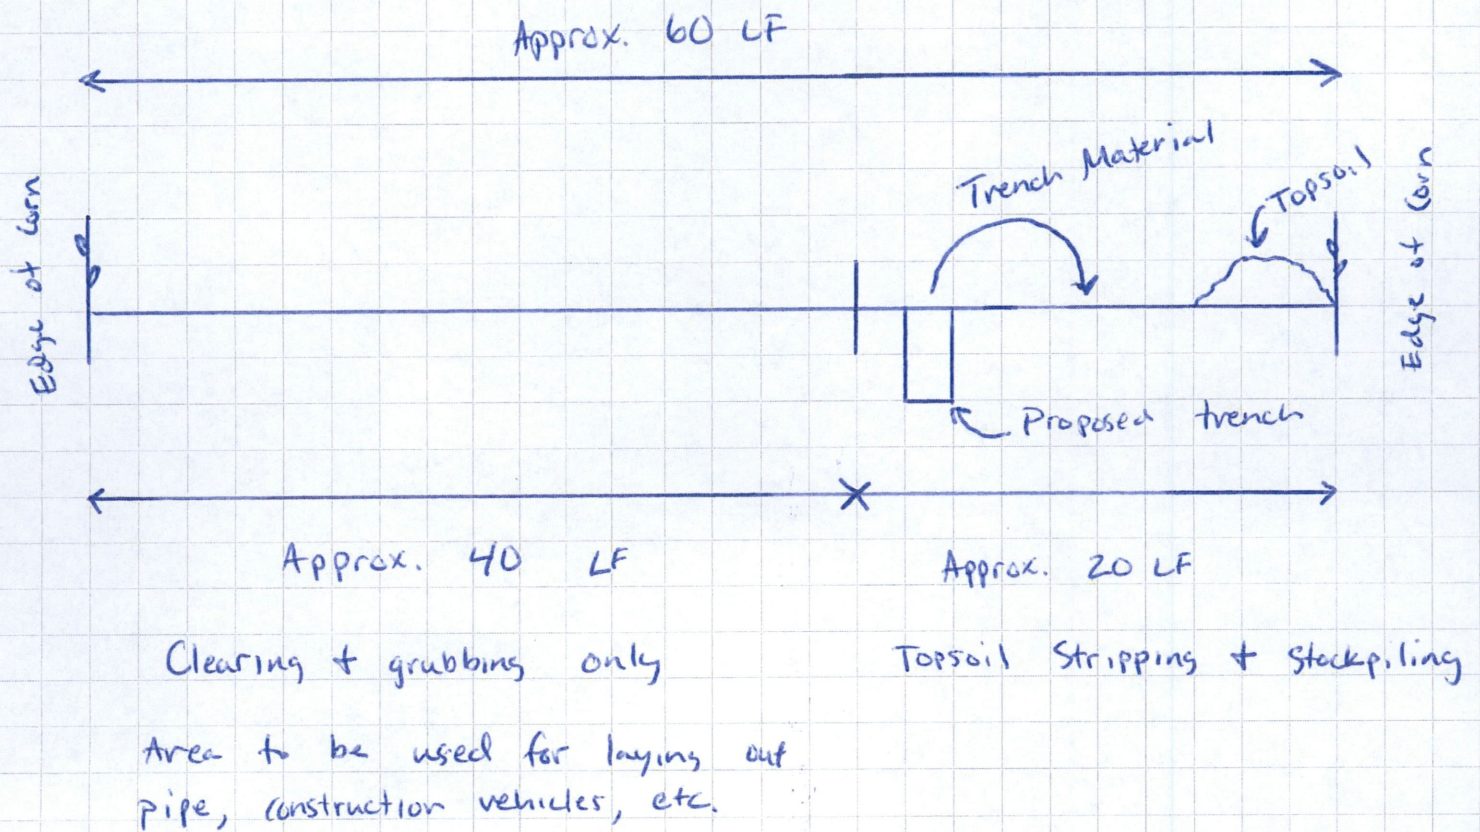 Approx. 60 LF
Trench Material
Topsoil
Edge of Corn
Edge of Corn
Proposed trench
Approx. 40 LF
Approx. 20 LF
Clearing + grubbing only
Topsoil Stripping + Stockpiling
Area to be used for laying out
pipe, construction vehicles, etc.